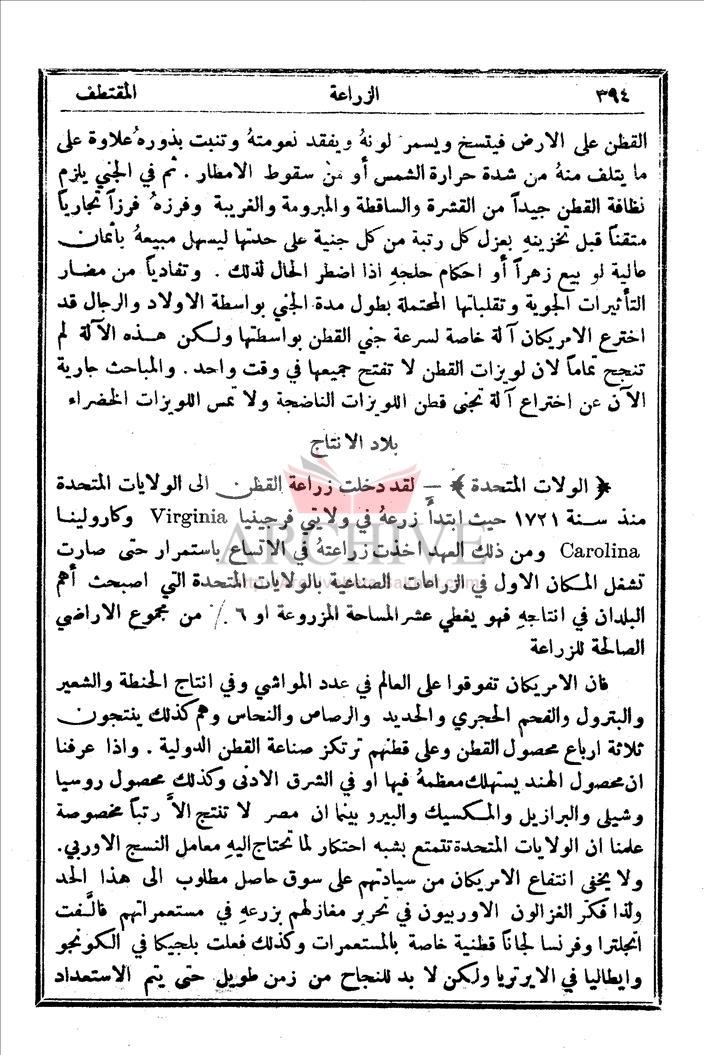 ٣٩٤ الزراعة المقتطف
القطن على الارض فيتسخ ويسمر لونهُ ويفقد نعومتهُ وتنبت بذورهُ علاوة على
ما يتلف منهُ من شدة حرارة الشمس أو من سقوط الامطار . ثم في الجني يلزم
نظافة القطن جيداً من القشرة والساقطة والمبرومة والغريبة وفرزهُ فرزاً تجارياً
متقناً قبل تخزينهِ بعزل كل رتبة من كل جنية على حدتها ليسهل مبيعهُ بأثمان
عالية لو بيع زهراً أو احكام حلجهِ اذا اضطر الحال لذلك . وتفادياً من مضار
التأثيرات الجوية وتقلباتها المحتملة بطول مدة الجني بواسطة الاولاد والرجال قد
اخترع الامريكان آلة خاصة لسرعة جني القطن بواسطتها ولكن هذه الآلة لم
تنجح تماماً لان لويزات القطن لا تفتح جميعها في وقت واحد . والمباحث جارية
الآن عن اختراع آلة تجنى قطن اللويزات الناضجة ولا تمس اللويزات الخضراء
بلاد الانتاج
﴿ الولات المتحدة ﴾ — لقد دخلت زراعة القطن الى الولايات المتحدة
منذ سنة ١٧٢١ حيث ابتدأ زرعهُ في ولايتي فرجينيا Virginia وكارولينا
Carolina ومن ذلك العهد اخذت زراعتهُ في الاتساع باستمرار حتى صارت
تشغل المكان الاول في الزراعات الصناعية بالولايات المتحدة التي اصبحت أهم
البلدان في انتاجهِ فهو يغطي عشر المساحة المزروعة او ٦ ٪ من مجموع الاراضي
الصالحة للزراعة
فان الامريكان تفوقوا على العالم في عدد المواشي وفي انتاج الحنطة والشعير
والبترول والفحم الحجري والحديد والرصاص والنحاس وهم كذلك ينتجون
ثلاثة ارباع محصول القطن وعلى قطنهم ترتكز صناعة القطن الدولية . واذا عرفنا
ان محصول الهند يستهلك معظمهُ فيها او في الشرق الادنى وكذلك محصول روسيا
وشيلي والبرازيل والمكسيك والبيرو بينما ان مصر لا تنتج الاَّ رتباً مخصوصة
علمنا ان الولايات المتحدة تتمتع بشبه احتكار لما تحتاج اليهِ معامل النسج الاوربي.
ولا يخفى انتفاع الامريكان من سيادتهم على سوق حاصل مطلوب الى هذا الحد
ولذا فكر الغزالون الاوربيون في تحرير مغازلهم بزرعهِ في مستعمراتهم فالَّفت
انجلترا وفرنسا لجاناً قطنية خاصة بالمستعمرات وكذلك فعلت بلجيكا في الكونجو
وايطاليا في الايرتريا ولكن لا بد للنجاح من زمن طويل حتى يتم الاستعداد
ARCHIVE